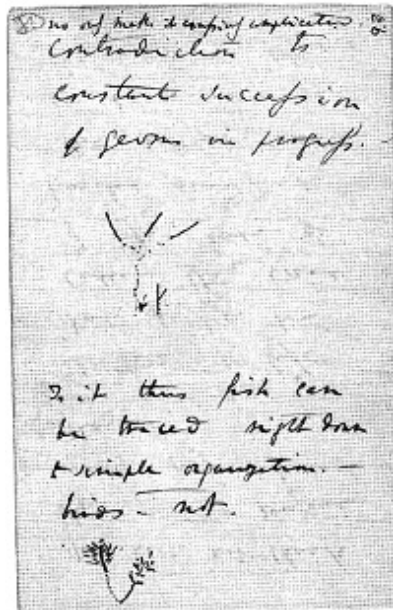 no only makes it excessively complicated.
contradiction to
constant succession
of germs in progress. -
Is it thus fish can
be traced right down
to simple organization. —
birds — not.